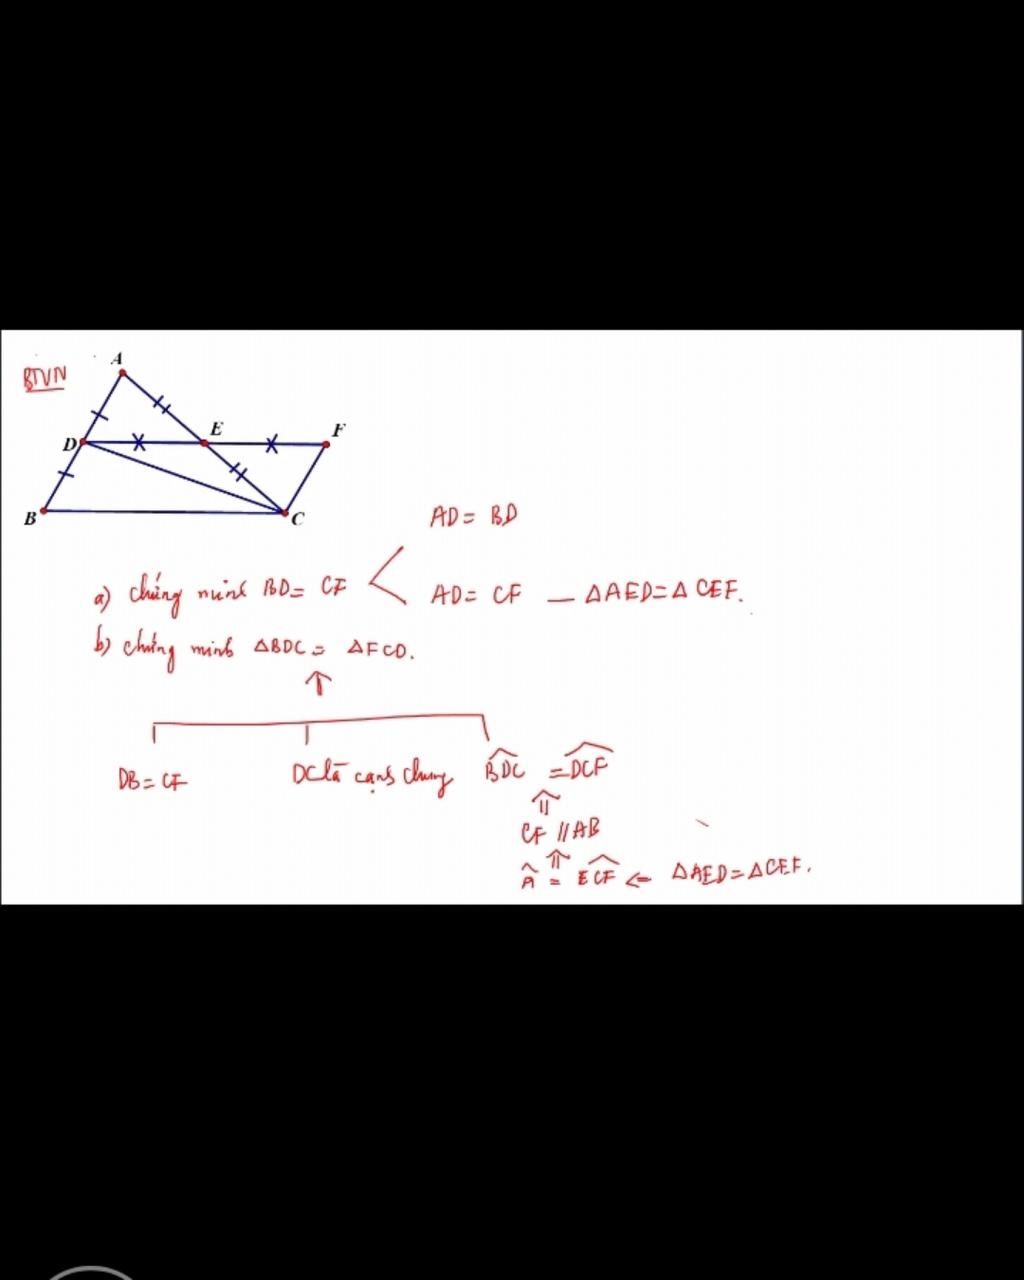 BTVN
A
E
F
D
B
C
AD = BD
a) chứng minh BD = CF
AD = CF — ΔAED = Δ CEF.
b) chứng minh ΔBDC = ΔFCD.
⇑
DB = CF
DC là cạnh chung
\widehat{BDC} = \widehat{DCF}
⇑
CF // AB
⇑
\widehat{A} = \widehat{ECF} ⇐ ΔAED = ΔCEF.